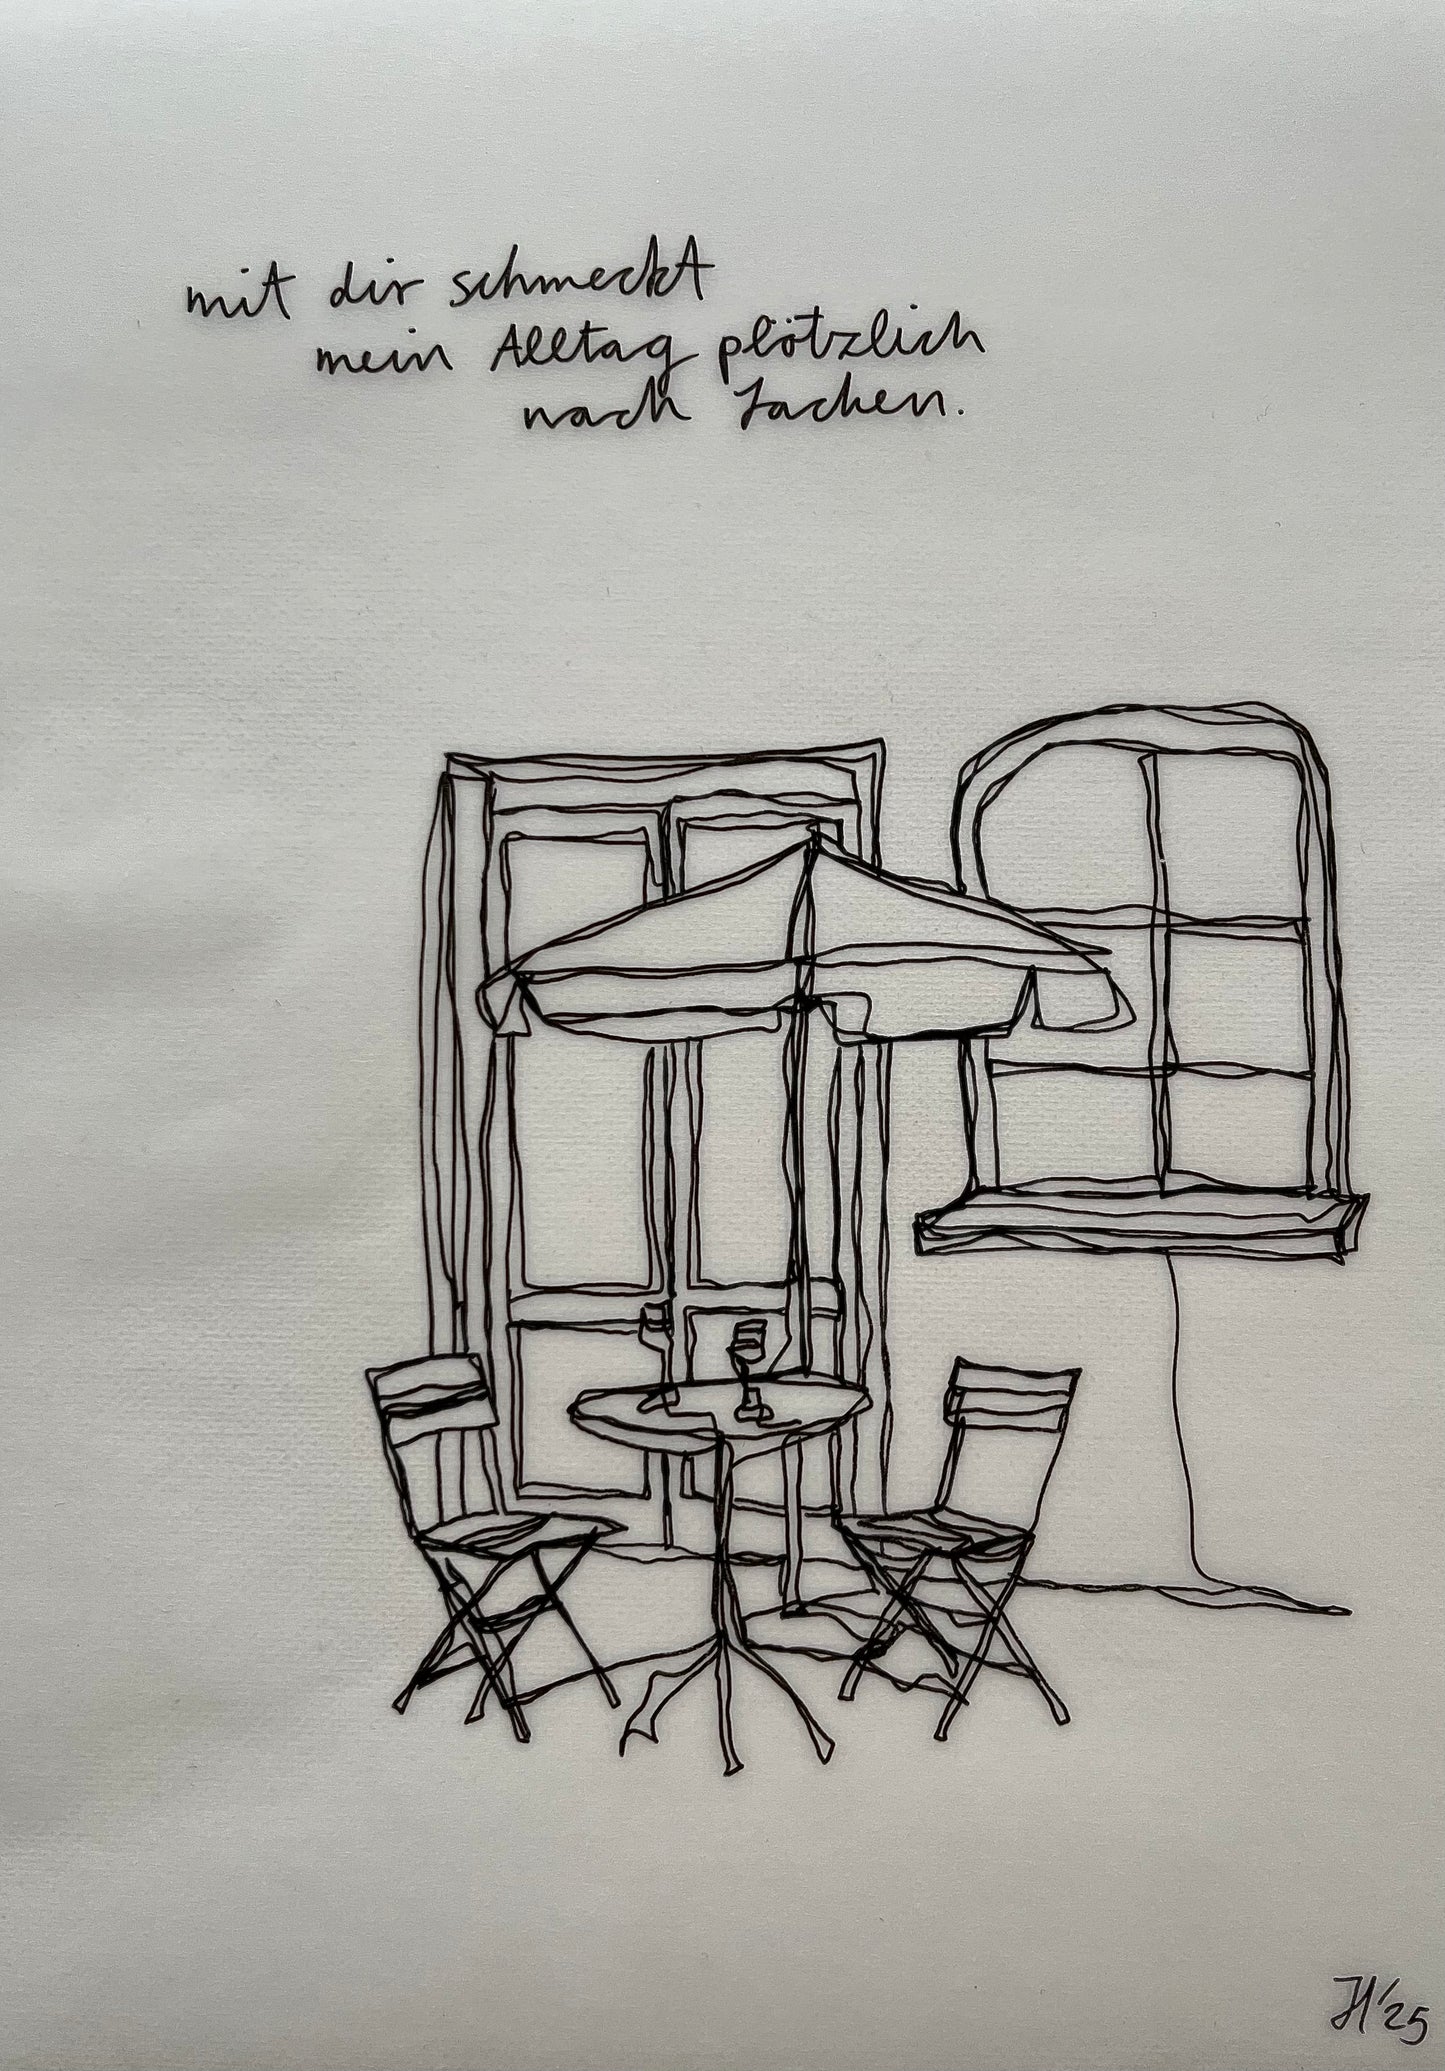 mit dir schmeckt
mein Alltag plötzlich
nach Lachen.
JH'25